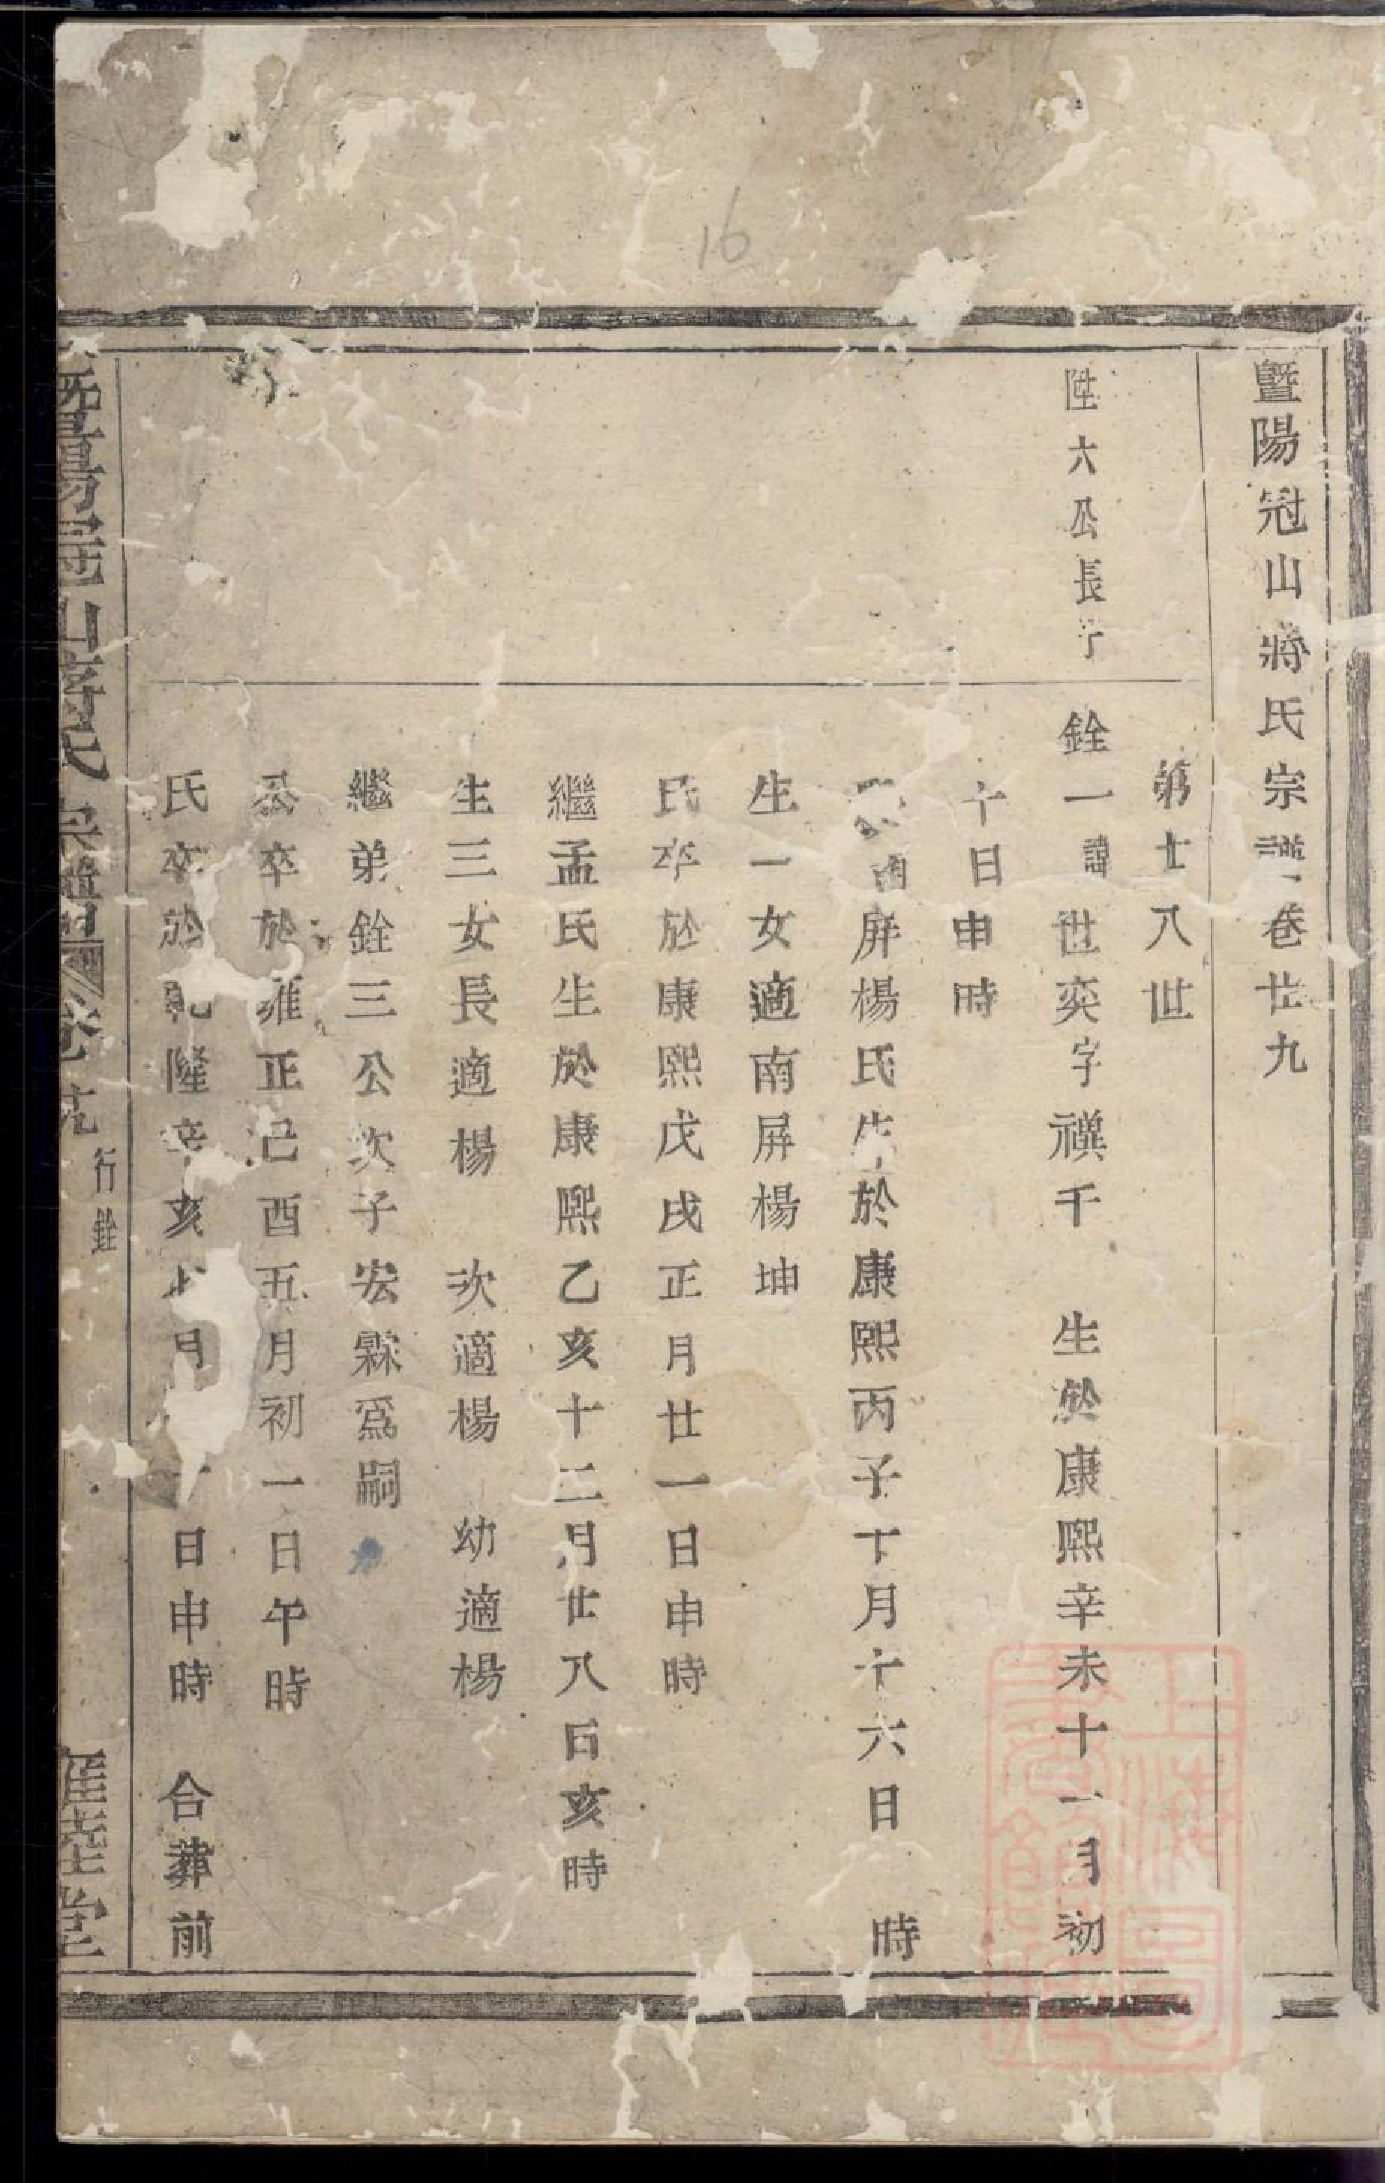 暨陽冠山蔣氏宗譜卷廿九
第十八世
陞六公長子
銓一諱世奕字禩千 生於康熙辛未十一月初
十日申時
南屏楊氏生於康熙丙子十月十六日 時
生一女適南屏楊坤
氏卒於康熙戊戌正月廿一日申時
繼孟氏生於康熙乙亥十二月廿八日亥時
生三女長適楊 次適楊 幼適楊
繼弟銓三公次子宏霖爲嗣
公卒於雍正己酉五月初一日午時
氏卒於乾隆辛亥 月 日申時 合葬前
暨陽冠山蔣氏宗譜 卷 行銓
睦堂
16
上海圖書館藏